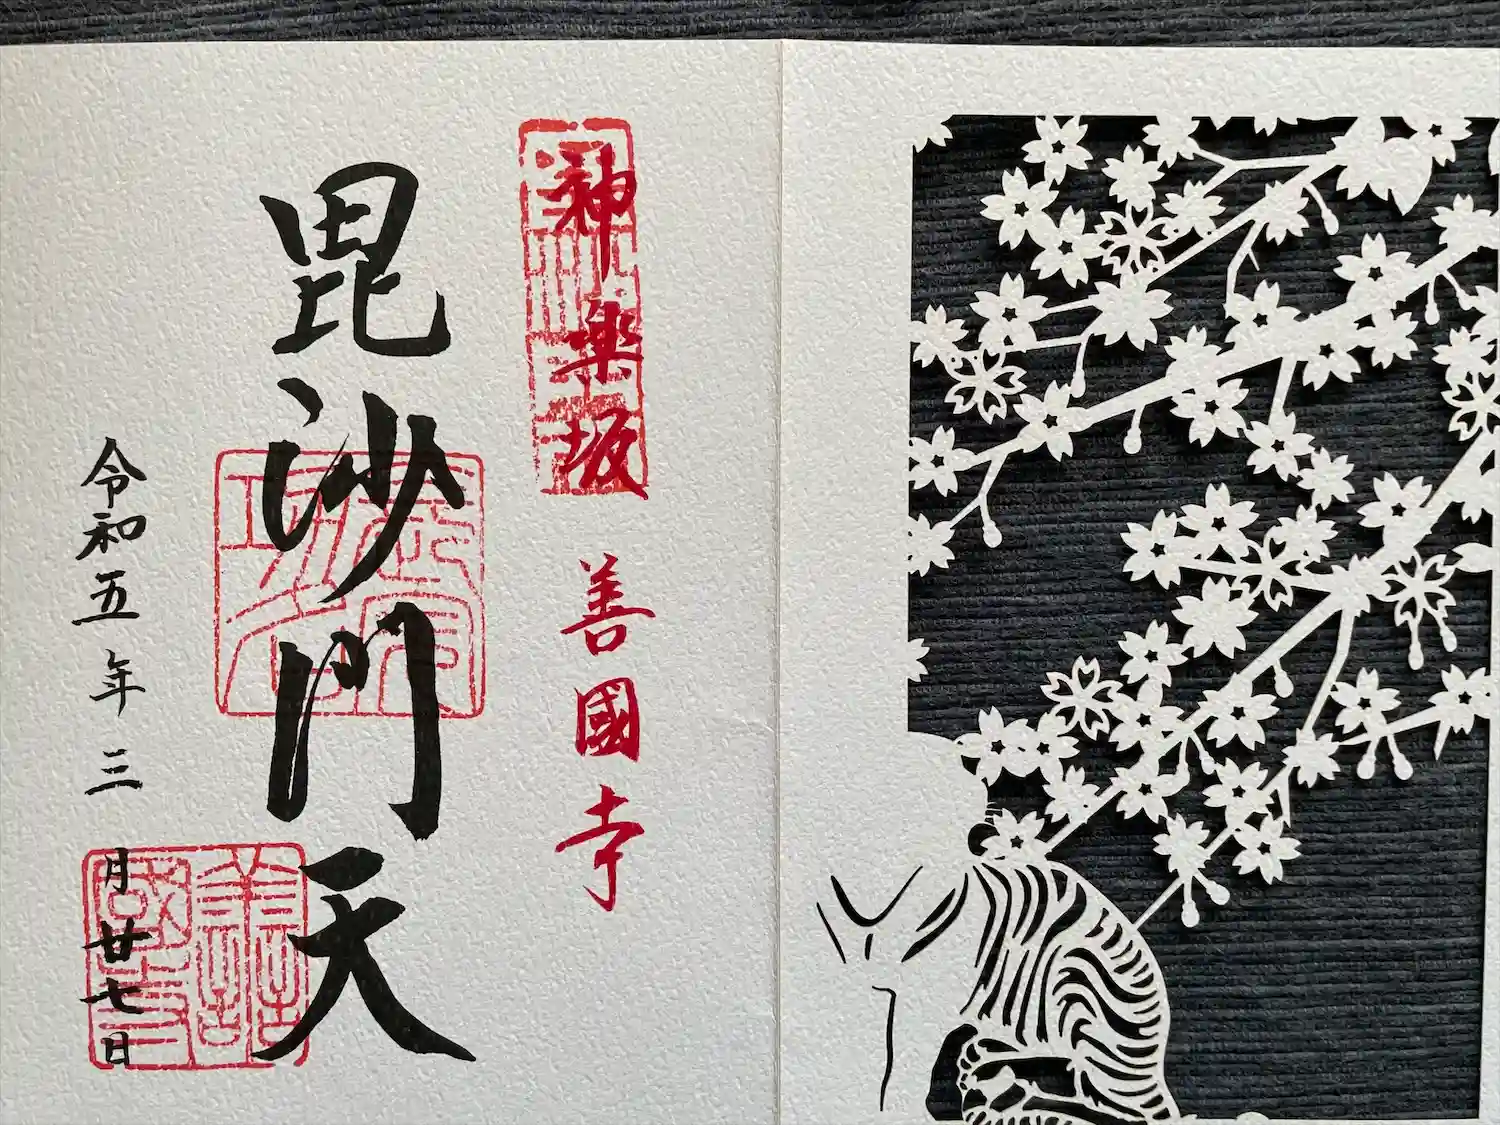 神楽坂
善國寺
毘沙門天
令和五年三月廿七日
善國寺